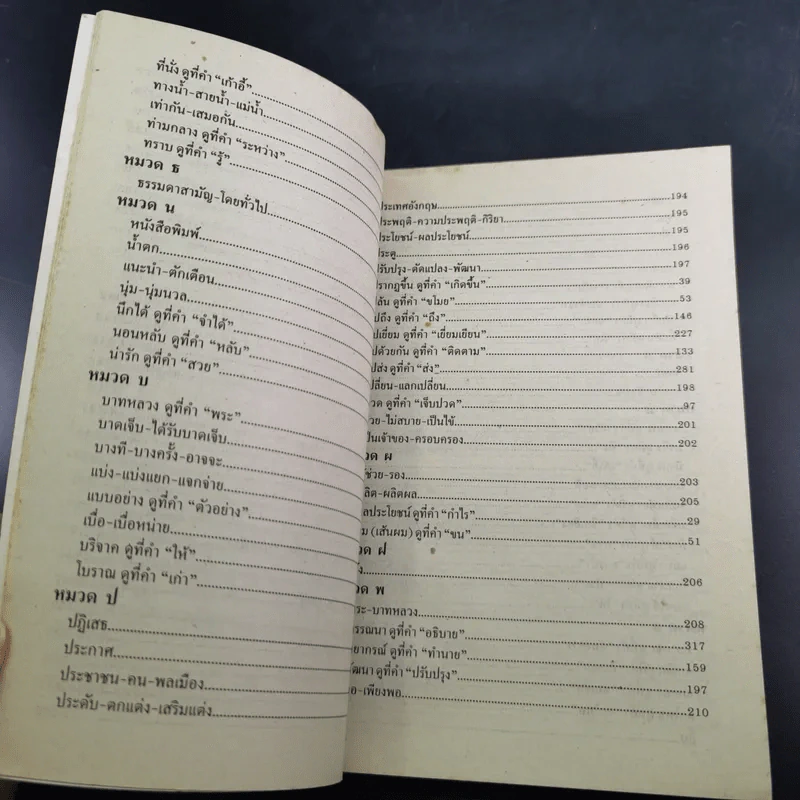 ที่นั่ง ดูที่คำ “เก้าอี้”
ทางน้ำ-สายน้ำ-แม่น้ำ
เท่ากัน-เสมอกัน
ท่ามกลาง ดูที่คำ “ระหว่าง”
ทราบ ดูที่คำ “รู้”
หมวด ธ
ธรรมดาสามัญ-โดยทั่วไป
หมวด น
หนังสือพิมพ์
น้ำตก
แนะนำ-ตักเตือน
นุ่ม-นุ่มนวล
นึกได้ ดูที่คำ “จำได้”
นอนหลับ ดูที่คำ “หลับ”
น่ารัก ดูที่คำ “สวย”
หมวด บ
บาทหลวง ดูที่คำ “พระ”
บาดเจ็บ-ได้รับบาดเจ็บ
บางที-บางครั้ง-อาจจะ
แบ่ง-แบ่งแยก-แจกจ่าย
แบบอย่าง ดูที่คำ “ตัวอย่าง”
เบื่อ-เบื่อหน่าย
บริจาค ดูที่คำ “ให้”
โบราณ ดูที่คำ “เก่า”
หมวด ป
ปฏิเสธ
ประกาศ
ประชาชน-คน-พลเมือง
ประดับ-ตกแต่ง-เสริมแต่ง
ประเทศอังกฤษ 194
ประพฤติ-ความประพฤติ-กิริยา 195
ประโยชน์-ผลประโยชน์ 195
ประตู 196
ปรับปรุง-ดัดแปลง-พัฒนา 197
ปรากฏขึ้น ดูที่คำ “เกิดขึ้น” 39
ดูที่คำ “ขโมย” 53
ไปถึง ดูที่คำ “ถึง” 146
ดูที่คำ “เยี่ยมเยียน” 227
ไปด้วยกัน ดูที่คำ “ติดตาม” 133
ดูที่คำ “ส่ง” 281
เปลี่ยน-แลกเปลี่ยน 198
ปวด ดูที่คำ “เจ็บปวด” 97
ป่วย-ไม่สบาย-เป็นไข้ 201
เป็นเจ้าของ-ครอบครอง 202
หมวด ผ
ผู้ช่วย-รอง 203
ผลิต-ผลิตผล 205
ผลประโยชน์ ดูที่คำ “กำไร” 29
ผม (เส้นผม) ดูที่คำ “ขน” 51
หมวด ฝ
206
หมวด พ
พระ-บาทหลวง 208
พรรณนา ดูที่คำ “อธิบาย” 317
พยากรณ์ ดูที่คำ “ทำนาย” 159
พัฒนา ดูที่คำ “ปรับปรุง” 197
พอ-เพียงพอ 210